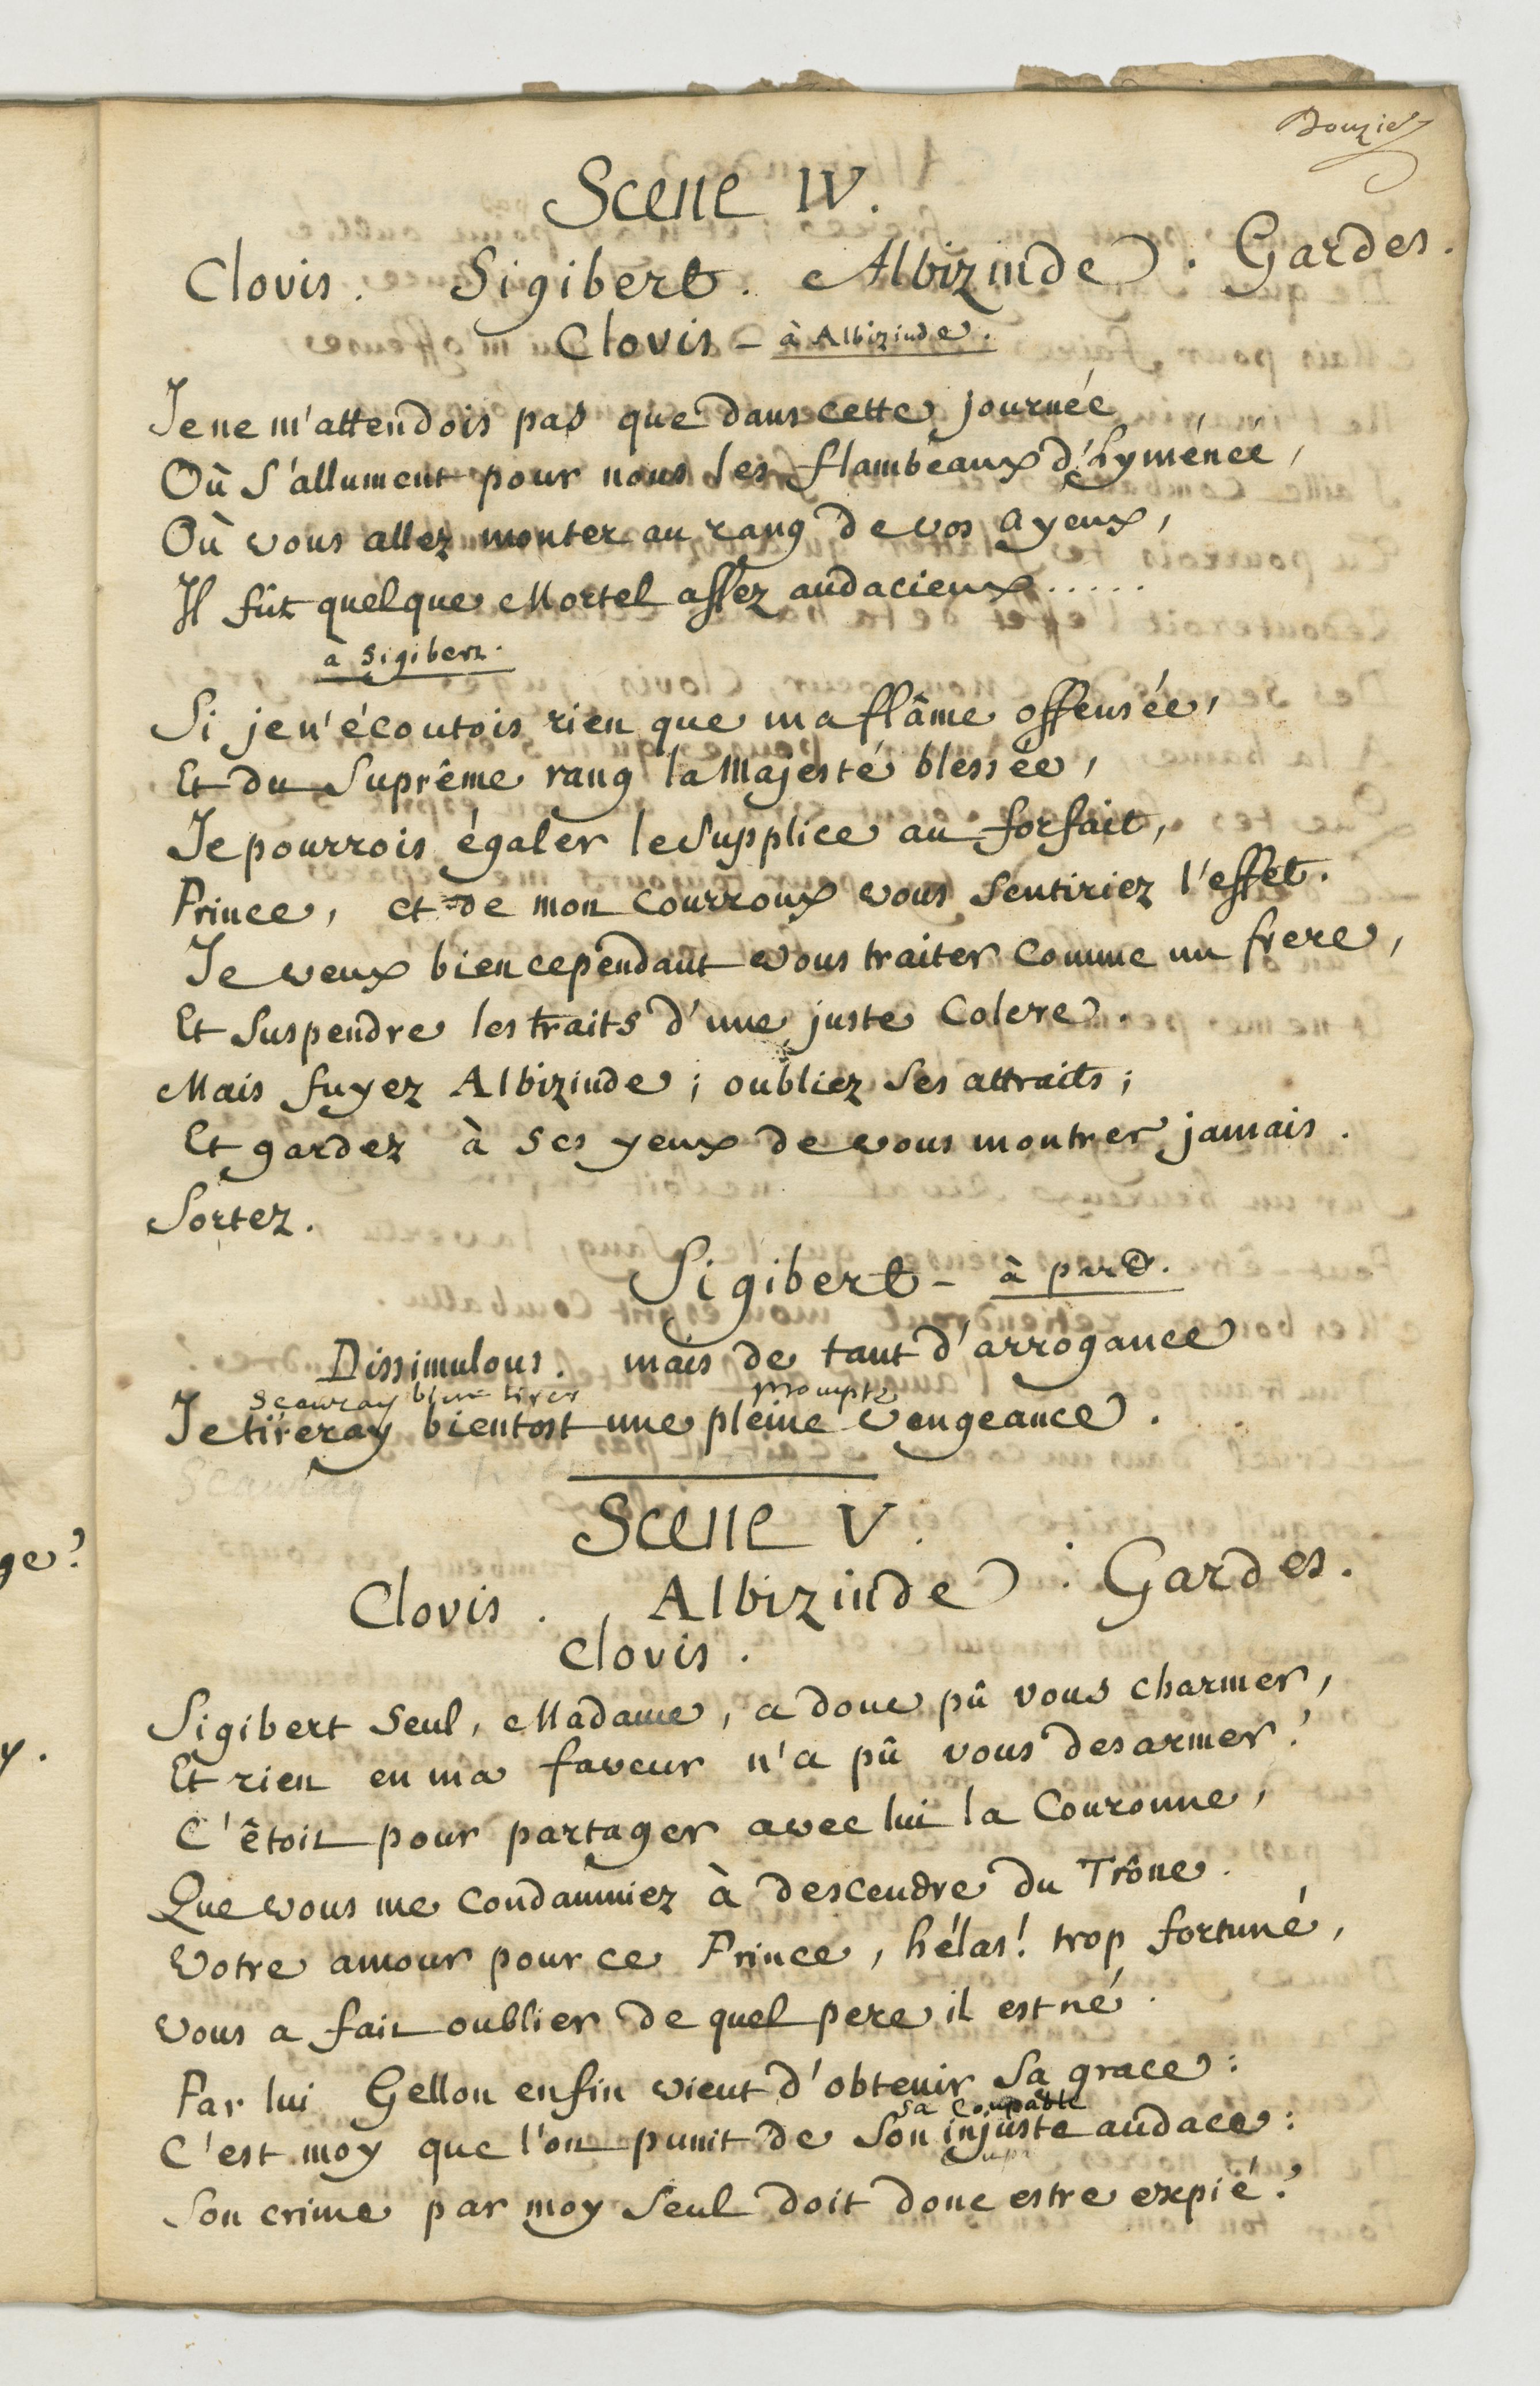 Douzies
Scene IV.
Clovis. Sigibert. Albizinde. Gardes.
Clovis - à Albizinde.
Je ne m'attendois pas que dans cette journée
Où s'allument pour nous les flambeaux d'hyménée,
Où vous allez monter au rang de vos ayeux,
Il fût quelque Mortel assez audacieux.....
à Sigibert.
Si je n'écoutois rien que ma flâme offensée,
Et du Suprême rang la Majesté blessée,
Je pourrois égaler le Supplice au forfait,
Prince, et de mon courroux vous sentiriez l'effet.
Je veux bien cependant vous traiter comme un frere,
Et Suspendre les traits d'une juste Colere.
Mais fuyez Albizinde; oubliez ses attraits;
Et gardez à ses yeux de vous montrer jamais.
Sortez.
Sigibert - à part.
Dissimulons. mais de tant d'arrogance
Scauray bien tirer prompte
Je tireray bientost une pleine vengeance.
Scauray
Scene V.
Clovis. Albizinde. Gardes.
Clovis.
Sigibert Seul, Madame, a donc pû vous charmer,
Et rien en ma faveur n'a pû vous desarmer!
C'êtoit pour partager avec lui la Couronne,
Que vous me condamniez à descendre du Trône.
Votre amour pour ce Prince, hélas! trop fortuné,
Vous a fait oublier de quel pere il est né.
Par lui Gellon enfin vient d'obtenir Sa grace:
sa coupable
C'est moy que l'on punit de Son injuste audace:
Son crime par moy Seul doit donc estre expié?
ge?
y.